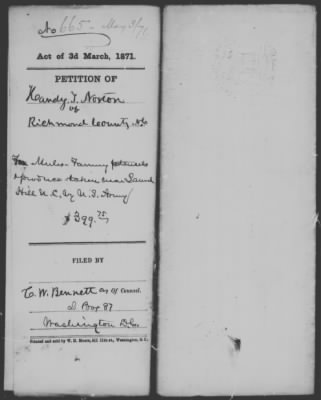 No 665 - May 3/71
Act of 3d March, 1871.
PETITION OF
Handy T. Norton
of
Richmond County N.C.
For Mules - Farming
produce taken near Laurel
Hill N.C. by U.S. Army
$399.75
FILED BY
C. W. Bennett Of Counsel.
Box 87
Washington D.C.
Printed and sold by W. H. Moore, 511 11th st., Washington, D. C.